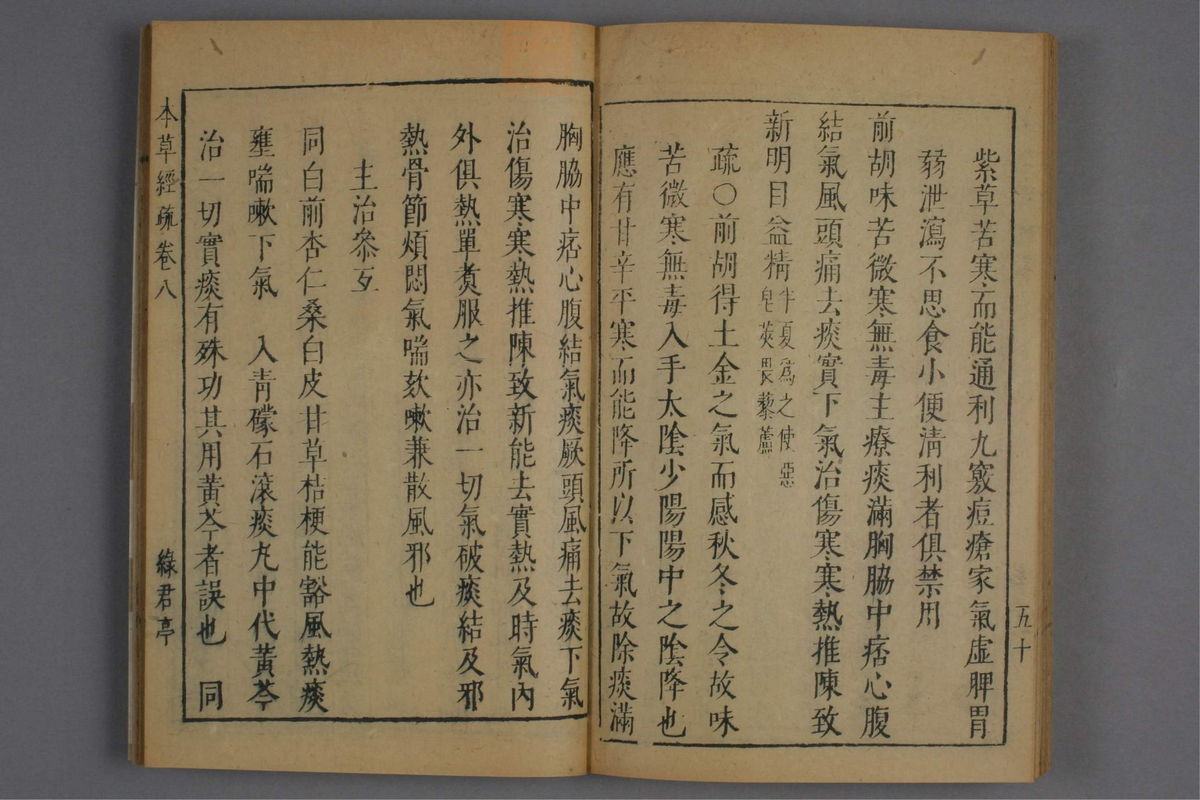 紫草苦寒而能通利九竅痘瘡家氣虛脾胃
弱泄瀉不思食小便淸利者俱禁用
前胡味苦微寒無毒主療痰滿胸脇中痞心腹
結氣風頭痛去痰實下氣治傷寒寒熱推陳致
新明目益精半夏爲之使惡
皂莢畏藜蘆
疏○前胡得土金之氣而感秋冬之令故味
苦微寒無毒入手太陰少陽陽中之陰降也
應有甘辛平寒而能降所以下氣故除痰滿
五十
胸脇中痞心腹結氣痰厥頭風痛去痰下氣
治傷寒寒熱推陳致新能去實熱及時氣內
外俱熱單煑服之亦治一切氣破痰結及邪
熱骨節煩悶氣喘欬嗽兼散風邪也
主治叅互
同白前杏仁桑白皮甘草桔梗能豁風熱痰
壅喘嗽下氣　入青礞石滾痰丸中代黃芩
治一切實痰有殊功其用黃芩者誤也　同
本草經疏卷八
綠君亭